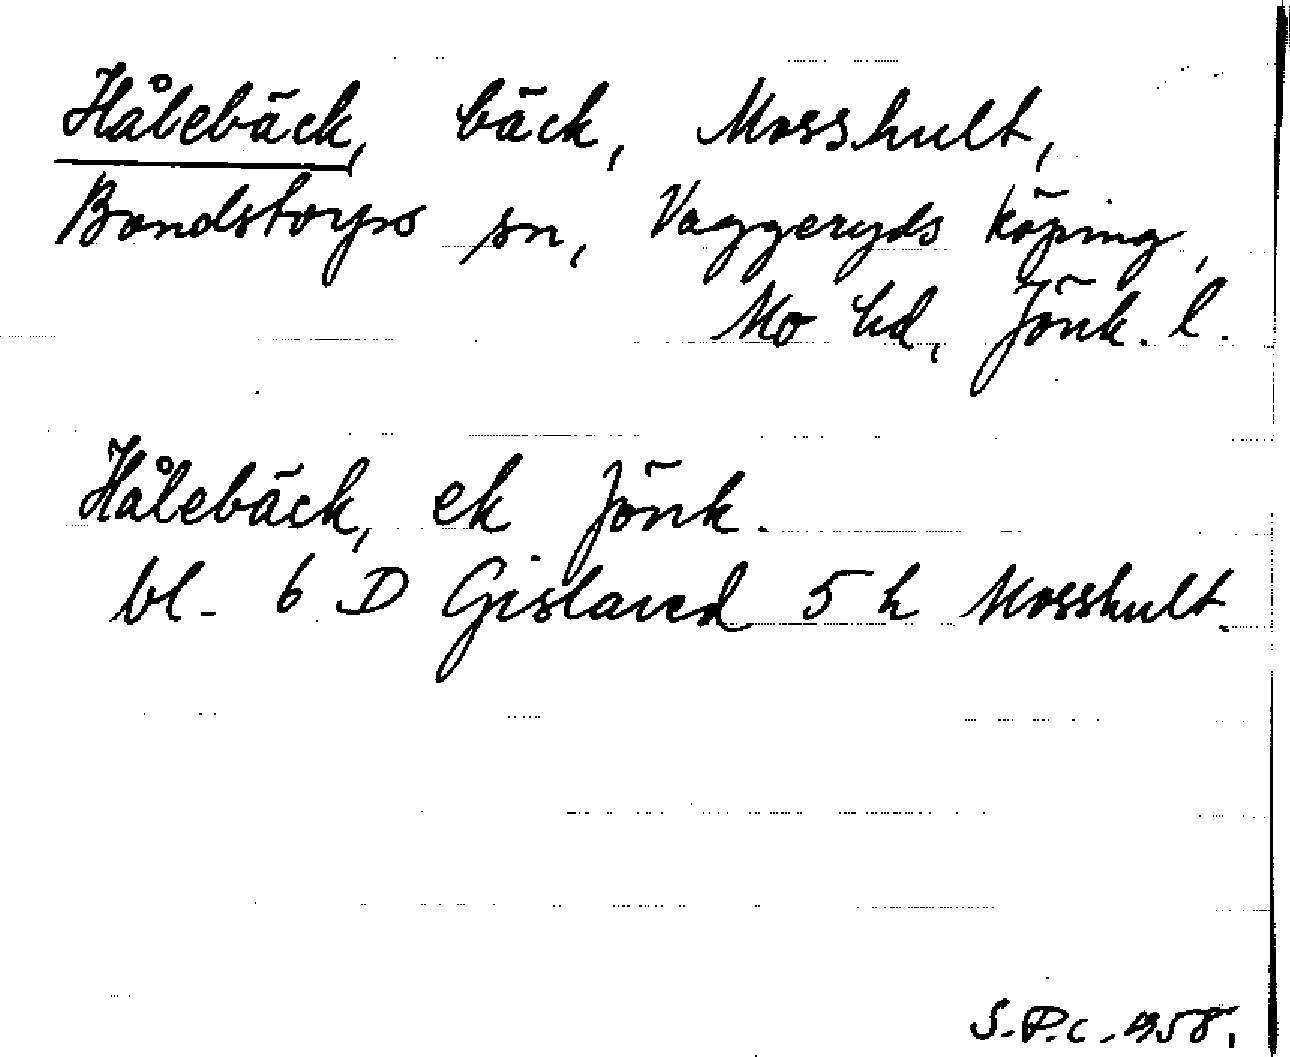 Hålebäck, bäck, Mosshult,
Bondstorps sn, Vaggeryds köping,
Mo hd, Jönk. l.
Hålebäck, ek Jönk.
bl. 6 D Gislaved 5 h Mosshult.
S.P.c. 1958.